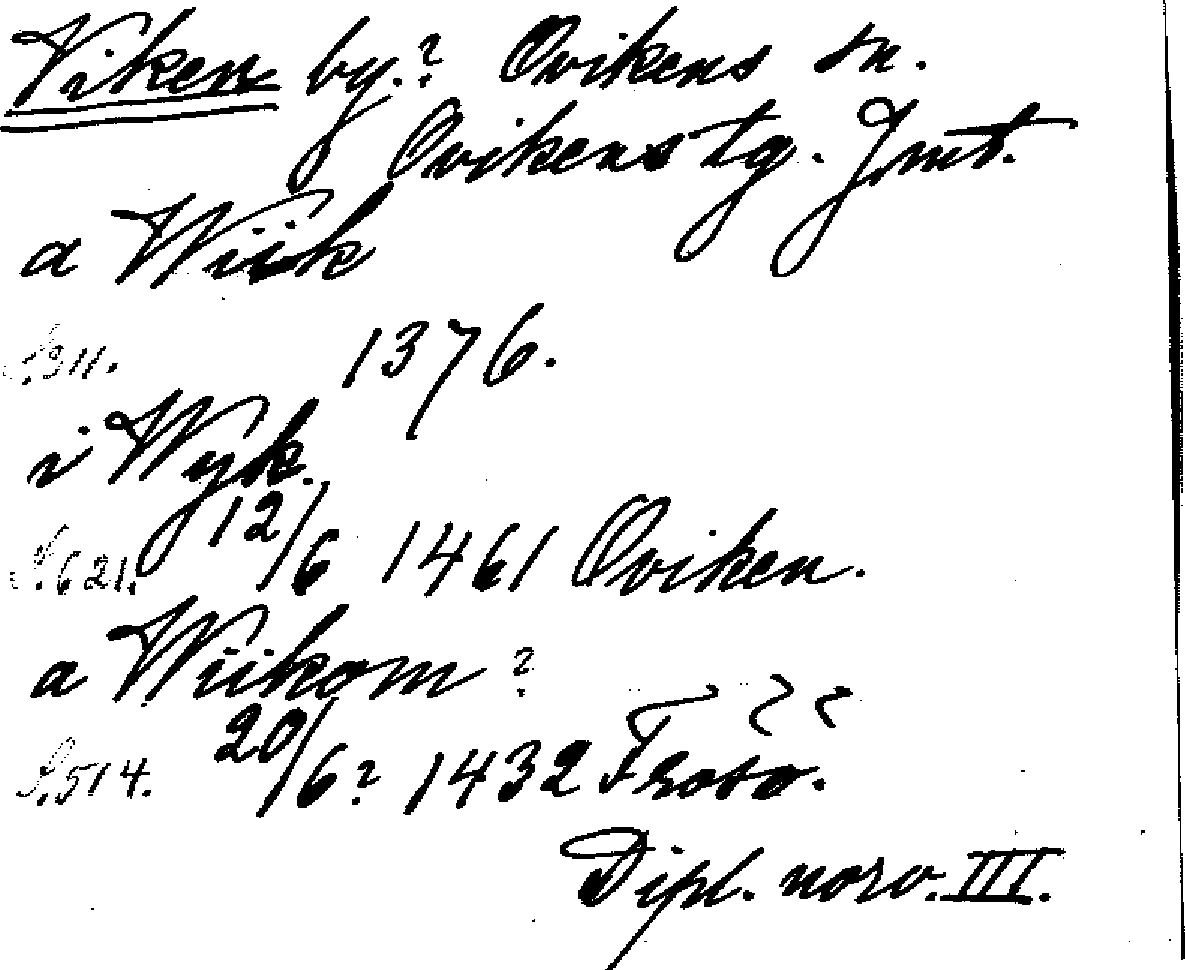 Viken by.? Ovikens sn.
Ovikens tg. Jmt.
a Wiik
S.311. 1376.
i Wyk.
S.621. 12/6 1461 Oviken.
a Wiikom ?
S.514. 20/6? 1432 Froso.
Dipl. norv. III.